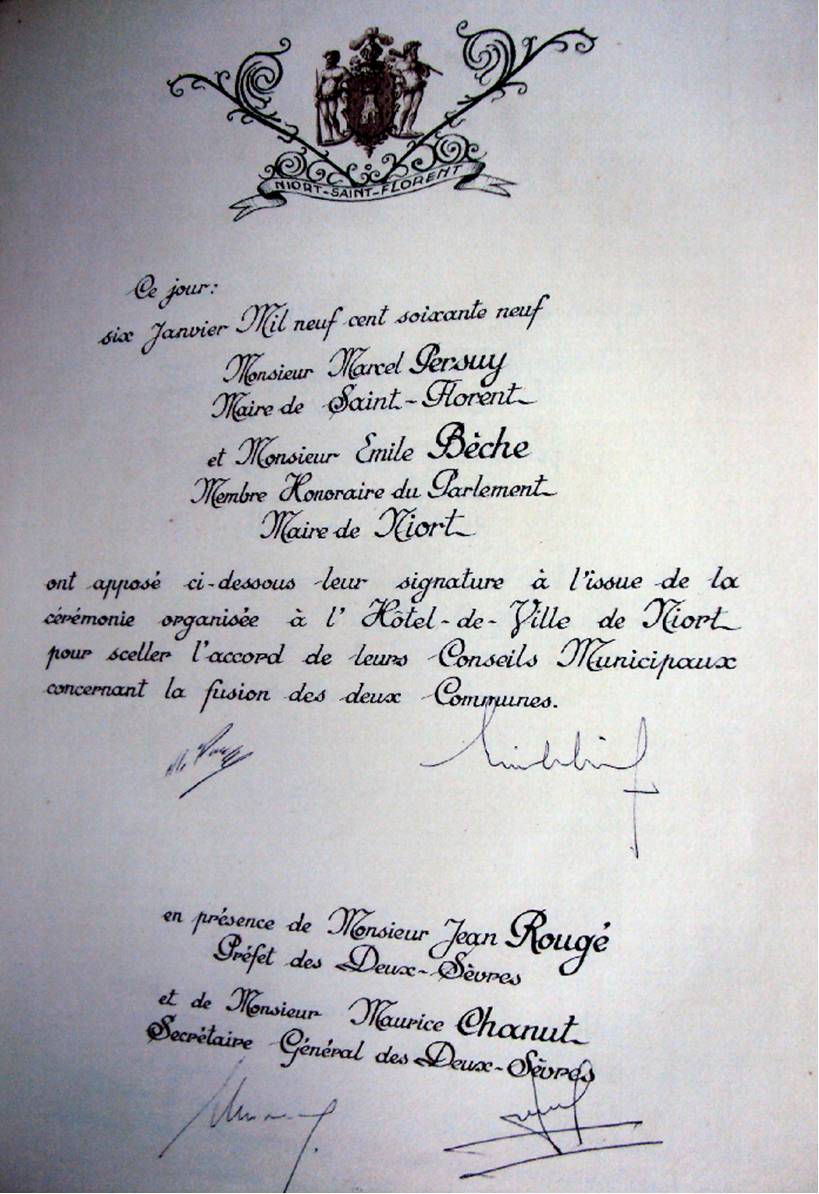 NIORT-SAINT-FLORENT
Ce jour:
six Janvier Mil neuf cent soixante neuf
Monsieur Marcel Persuy
Maire de Saint-Florent
et Monsieur Emile Bèche
Membre Honoraire du Parlement
Maire de Niort
ont apposé ci-dessous leur signature à l'issue de la
cérémonie organisée à l' Hôtel-de-Ville de Niort
pour sceller l'accord de leurs Conseils Municipaux
concernant la fusion des deux Communes.
en présence de Monsieur Jean Rougé
Préfet des Deux-Sèvres
et de Monsieur Maurice Chanut
Secrétaire Général des Deux-Sèvres